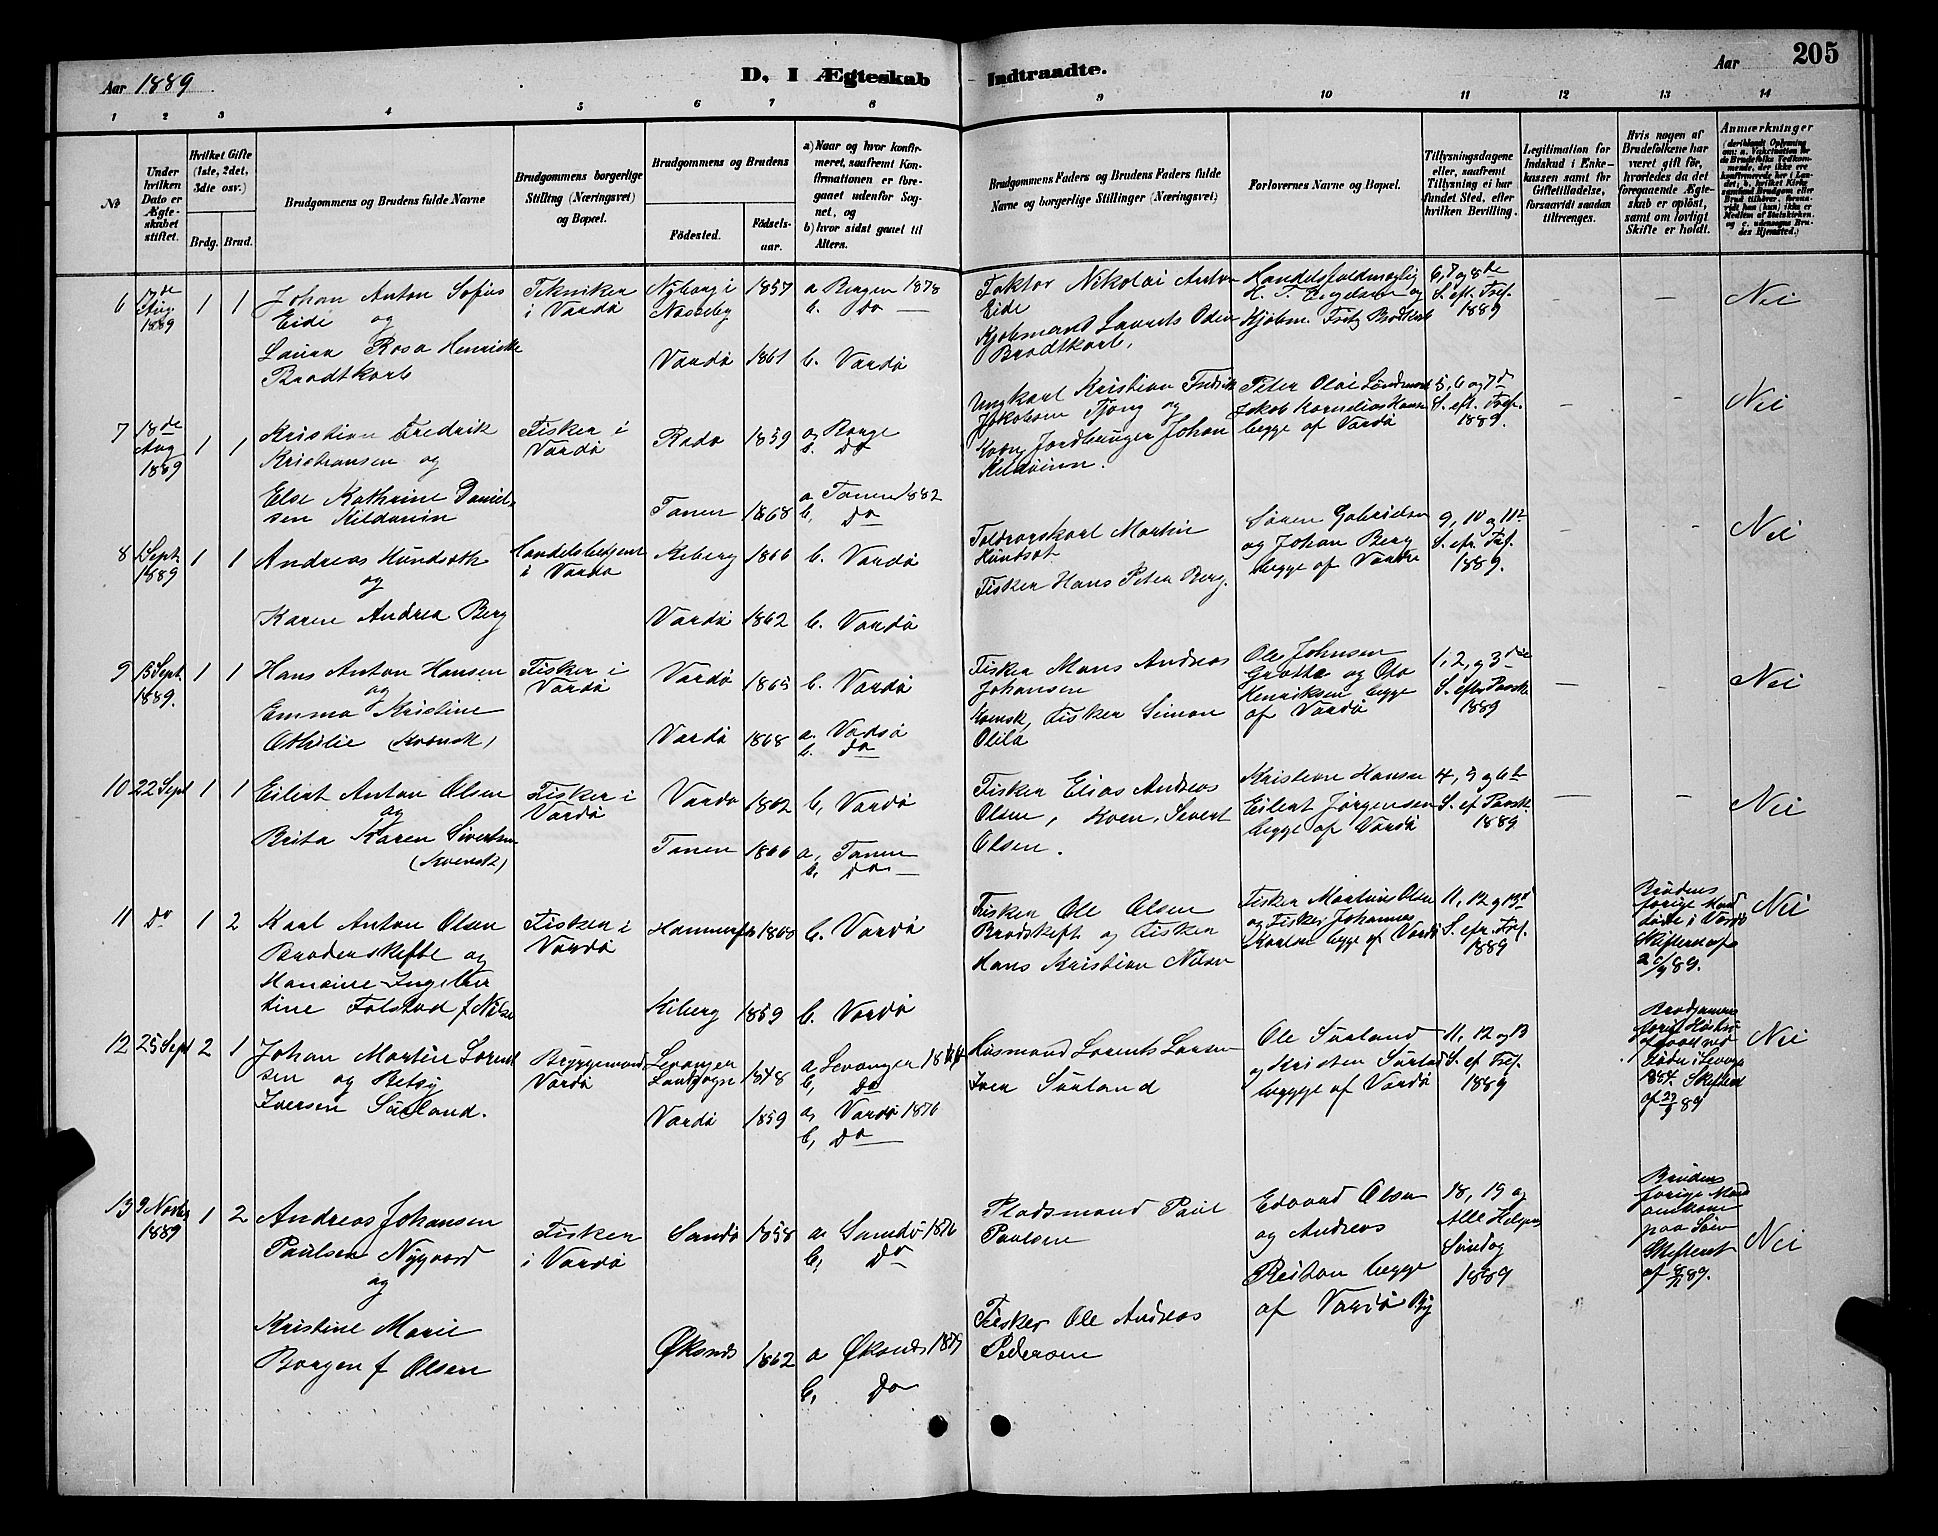 Aar 1889
D, I Ægteskab
Indtraadte.
Aar
205
1 2 3 4 5 6 7 8 9 10 11 12 13 14
No
Under hvilken Dato er Ægteskabet stiftet.
Hvilket Gifte (1ste, 2det, 3die osv.)
Brdg. Brud.
Brudgommens og Brudens fulde Navne
Brudgommens borgerlige Stilling (Næringsvei) og Bopæl.
Brudgommens og Brudens
Fødested.
Fødselsaar.
a) Naar og hvor konfirmeret, saafremt Konfirmationen er foregaaet udenfor Sognet, og
b) hvor sidst gaaet til Alters.
Brudgommens Faders og Brudens Faders fulde Navne og borgerlige Stillinger (Næringsvei)
Forlovernes Navne og Bopæl.
Tillysningsdagene eller, saafremt Tillysning ei har fundet Sted, efter hvilken Bevilling.
Legitimation for Indskud i Enkekassen samt for Giftetilladelse, forsaavidt saadan tiltrænges.
Hvis nogen af Brudefolkene har været gift før, hvorledes da det foregaaende Ægteskab er opløst, samt om lovligt Skifte er holdt.
Anmærkninger
6
17de Aug. 1889
1 1
Johan Anton Sofus
Eide og
Laura Rosa Henrikke
Brodtkorb
Tekniker
i Vardø
Nyborg i
Nesseby
1857
a Bergen 1878
b. Do
Vardø 1861 b. Vardø
Faktor Nikolai Anton
Eide
Kjøbmand Laurits Oden
Brodtkorb,
Handelsfuldmægtig
Kjøbm. Fritz Brodtkorb
6, 7 og 8de
S. eft. Tref.
1889
Nei
7
18de Aug 1889
1 1
Kristian Fredrik
Kristiansen og
Else Kathrine Daniel-
sen Kildanin
Fisker i
Vardø
Rødø 1859
b. Do
Tanen 1868
a Tanen 1882
b, Do
Ungkarl Kristian Fredrik
Jakobsen Tjong og
Kvæn, Jordbruger Johan
Peter Olai
Jakob Kornelius Hansen
begge af Vardø
5, 6 og 7d
S. eft. Tref.
1889.
Nei
8
Sept. 1889
1 1
Andreas Hundseth
og
Karen Andrea Berg
Handelsbetjent
i Vardø
Kiberg 1866 b. Vardø
Vardø 1862 b. Vardø
Martin
Fisker Hans Peter Berg.
Søren Gabrielsen
og Johan Berg
begge af Vardø
9, 10 og 11te
S. eft. Tref.
1889.
Nei
9
15 Sept. 1889.
1 1
Hans Anton Hansen
og
Emma Kristine
Othilie (Kvensk)
Fisker i
Vardø
Vardø 1865 b. Vardø
Vardø 1868 a. Vadsø
b. Do
Fisker Hans Andreas
Johansen
Kvensk, Fisker Simon
Olila
Ole Johnsen
Grotte og Ole
Henriksen begge
af Vardø
1, 2, og 3die
S. efter Paaske
1889
Nei
10
22 Sept
1 1
Eilert Anton Olsen
og
Brita Karen Sivertsen
(Kvensk)
Fisker i
Vardø
Vardø 1862 b, Vardø
Tanen 1866 a, Tanen
b, Do
Fisker Elias Andreas
Olsen, Kven, Severt
Olsen.
Kristian Hansen
Eilert Jørgensen
begge af Vardø
4, 5 og 6te
S. ef Paask.
1889
Nei
11
Do
1 2
Karl Anton Olsen
Broderskefte og
Hansine Ingeber
tine Folstad f Nilsen
Fisker i
Vardø
Hammerfest 1868 b. Vardø
Kiberg 1859 b. Vardø
Fisker Ole Olsen
Brodskeft og Fisker
Hans Kristian Nilsen
Fisker Martinus Olsen
og Fisker Johannes
begge af Vardø
11, 12 og 13d
S. eftr. Tref.
1889
Brudens
forige Mand
døde i Vardø
Skifteatt af
89.
Nei
12
25 Sept
2 1
Johan Martin Lorent
sen og Betsy
Iversen Sürland.
Bryggemand
Vardø
Levanger
Landsogn
1848
a Levanger 1864
b, Do
Vardø 1859
a, Vardø 1876
b, Do
Husmand Lorents Larsen
Iver Sürland
Ole Sürland
og Kristen Sürland
begge af Vardø
11, 12 og 13
S. ef Tref.
1889
Brudgommens
Skifteatt
89
Nei
13
9 Novbr 1889
1 2
Andreas Johansen
Paulsen Nygaard
og
Kristine Marie
Borgen f Olsen
Fisker
i Vardø
Sandø 1858 a. Sandø 1876
b, Do
Øksnes 1862 a Øksnes 1879
b, Do
Pladsmand Paul
Paulsen
Fisker Ole Andreas
Pedersen
Edvard Olsen
og Andreas
Reitan begge
af Vardø By
18, 19 og
Alle Helgens
Søndag
1889
Brudens
forige Mand
omkom
paa Søen
Skifteatt
af 8/11 89.
Nei